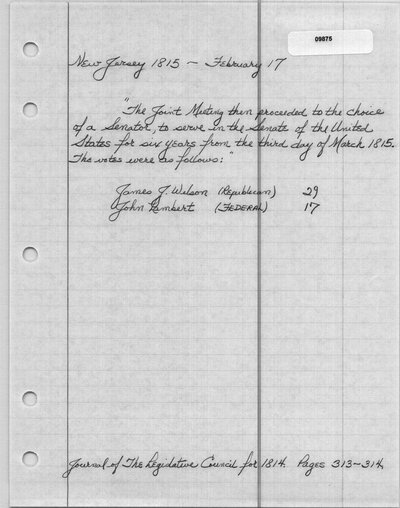 09875
New Jersey 1815 - February 17
"The Joint Meeting then proceeded to the choice
of a Senator, to serve in the Senate of the United
States for six years from the third day of March 1815.
The votes were as follows:"
James J. Wilson (Republican) 29
John Lambert (FEDERAL) 17
Journal of The Legislative Council for 1814. Pages 313-314